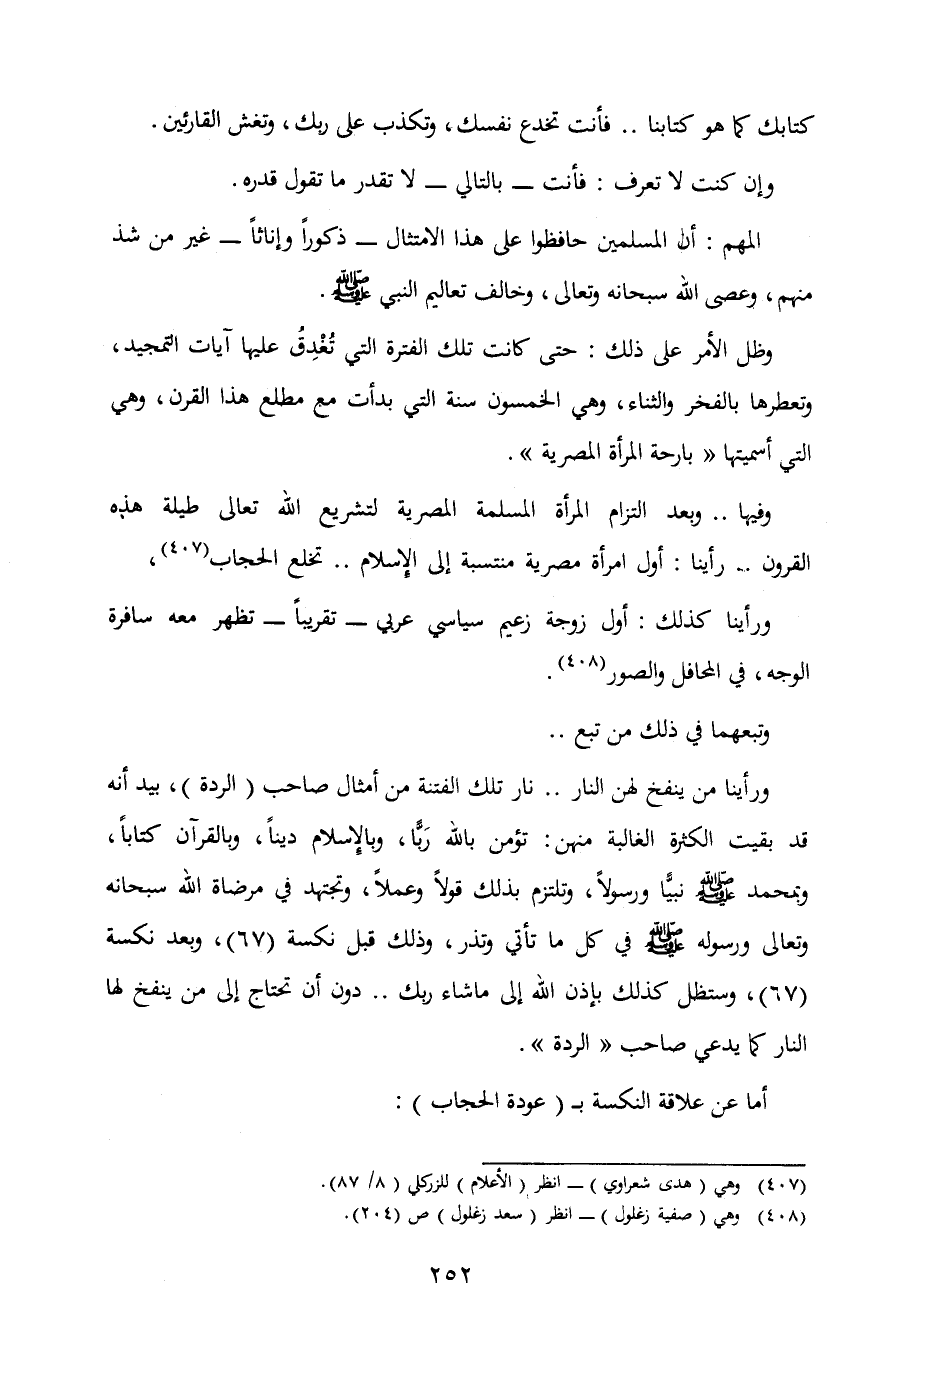 كتابك كما هو كتابنا .. فأنت تخدع نفسك، وتكذب على ربك، وتغش القارئين .
وإن كنت لا تعرف : فأنت ــ بالتالي ــ لا تقدر ما تقول قدره.
المهم : أن المسلمين حافظوا على هذا الامتثال ــ ذكوراً وإناثاً ــ غير من شذ
منهم، وعصى الله سبحانه وتعالى، وخالف تعاليم النبي ﷺ .
وظل الأمر على ذلك : حتى كانت تلك الفترة التي تُغْدِقُ عليها آيات التمجيد،
وتعطرها بالفخر والثناء، وهي الخمسون سنة التي بدأت مع مطلع هذا القرن، وهي
التي أسميتها « بارحة المرأة المصرية ».
وفيها .. وبعد التزام المرأة المسلمة المصرية لتشريع الله تعالى طيلة هذه
القرون .. رأينا : أول امرأة مصرية منتسبة إلى الإسلام .. تخلع الحجاب(٤٠٧)،
ورأينا كذلك : أول زوجة زعيم سياسي عربي ــ تقريباً ــ تظهر معه سافرة
الوجه، في المحافل والصور(٤٠٨).
وتبعهما في ذلك من تبع ..
ورأينا من ينفخ لهن النار .. نار تلك الفتنة من أمثال صاحب ( الردة )، بيد أنه
قد بقيت الكثرة الغالبة منهن: تؤمن بالله رَبًّا، وبالإسلام ديناً، وبالقرآن كتاباً،
وبمحمد ﷺ نبيًّا ورسولاً، وتلتزم بذلك قولاً وعملاً، وتجتهد في مرضاة الله سبحانه
وتعالى ورسوله ﷺ في كل ما تأتي وتذر، وذلك قبل نكسة (٦٧)، وبعد نكسة
(٦٧)، وستظل كذلك بإذن الله إلى ماشاء ربك .. دون أن تحتاج إلى من ينفخ لها
النار كما يدعي صاحب « الردة ».
أما عن علاقة النكسة بـ ( عودة الحجاب ) :
(٤٠٧) وهي ( هدى شعراوي ) ــ انظر ( الأعلام ) للزركلي ( ٨/ ٨٧).
(٤٠٨) وهي ( صفية زغلول ) ــ انظر ( سعد زغلول ) ص (٢٠٤).
٢٥٢